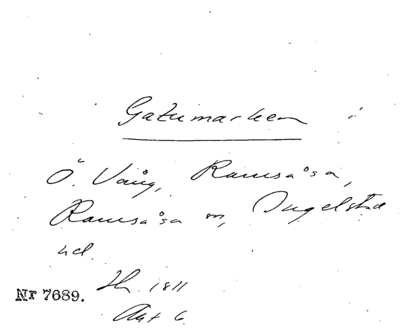 Gatumarken i
Ö. Vång, Ramsåsa,
Ramsåsa sn, Ingelstad
hd.
1811
Nr 7689.
Akt 6